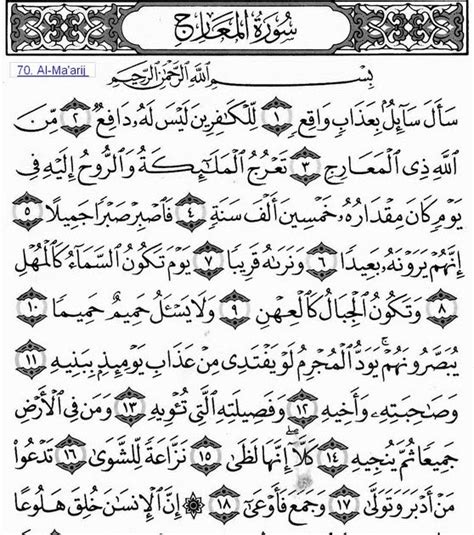 سُورَةُ المَعَارِجِ
70. Al-Ma'arij
بِسْمِ ٱللَّهِ ٱلرَّحْمَٰنِ ٱلرَّحِيمِ
سَأَلَ سَآئِلٌۢ بِعَذَابٍ وَاقِعٍ ١ لِّلْكَٰفِرِينَ لَيْسَ لَهُۥ دَافِعٌ ٢ مِّنَ
ٱللَّهِ ذِى ٱلْمَعَارِجِ ٣ تَعْرُجُ ٱلْمَلَٰٓئِكَةُ وَٱلرُّوحُ إِلَيْهِ فِى
يَوْمٍ كَانَ مِقْدَارُهُۥ خَمْسِينَ أَلْفَ سَنَةٍ ٤ فَٱصْبِرْ صَبْرًا جَمِيلًا ٥
إِنَّهُمْ يَرَوْنَهُۥ بَعِيدًا ٦ وَنَرَىٰهُ قَرِيبًا ٧ يَوْمَ تَكُونُ ٱلسَّمَآءُ كَٱلْمُهْلِ
٨ وَتَكُونُ ٱلْجِبَالُ كَٱلْعِهْنِ ٩ وَلَا يَسْـَٔلُ حَمِيمٌ حَمِيمًا ١٠
يُبَصَّرُونَهُمْ ۚ يَوَدُّ ٱلْمُجْرِمُ لَوْ يَفْتَدِى مِنْ عَذَابِ يَوْمِئِذٍۭ بِبَنِيهِ ١١
وَصَٰحِبَتِهِۦ وَأَخِيهِ ١٢ وَفَصِيلَتِهِ ٱلَّتِى تُـْٔوِيهِ ١٣ وَمَن فِى ٱلْأَرْضِ
جَمِيعًا ثُمَّ يُنجِيهِ ١٤ كَلَّآ ۖ إِنَّهَا لَظَىٰ ١٥ نَزَّاعَةً لِّلشَّوَىٰ ١٦ تَدْعُوا۟
مَنْ أَدْبَرَ وَتَوَلَّىٰ ١٧ وَجَمَعَ فَأَوْعَىٰٓ ١٨ ۞ إِنَّ ٱلْإِنسَٰنَ خُلِقَ هَلُوعًا